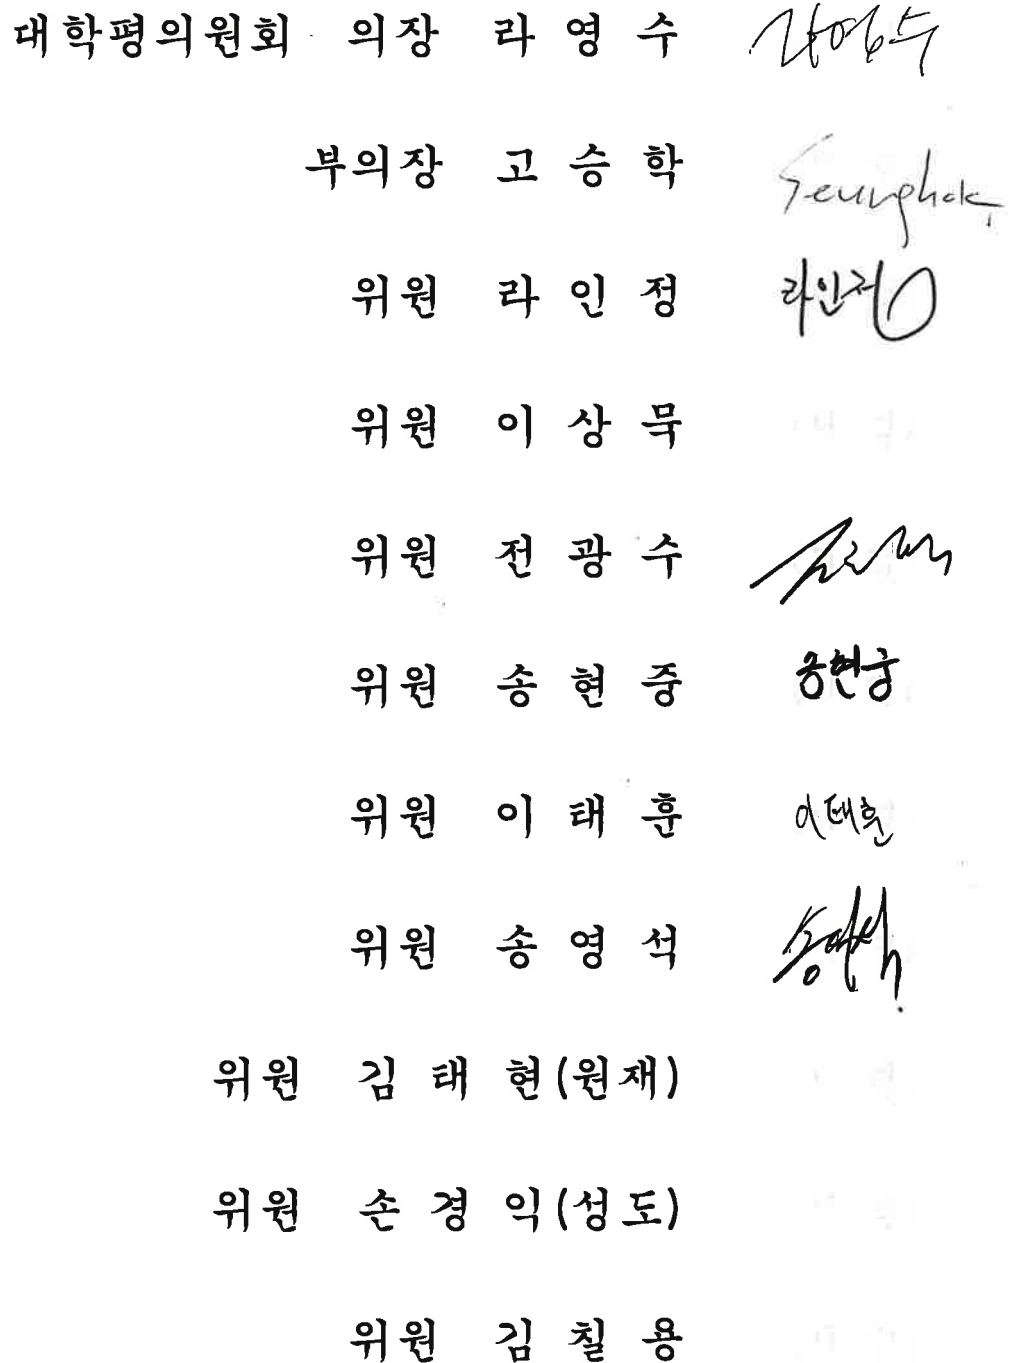 대학평의원회 의장 라 영 수 라영수
부의장 고 승 학 Seunghak
위원 라 인 정 라인정
위원 이 상 묵
위원 전 광 수
위원 송 현 중 송현중
위원 이 태 훈 이태훈
위원 송 영 석 송영석
위원 김 태 현(원재)
위원 손 경 익(성도)
위원 김 칠 용